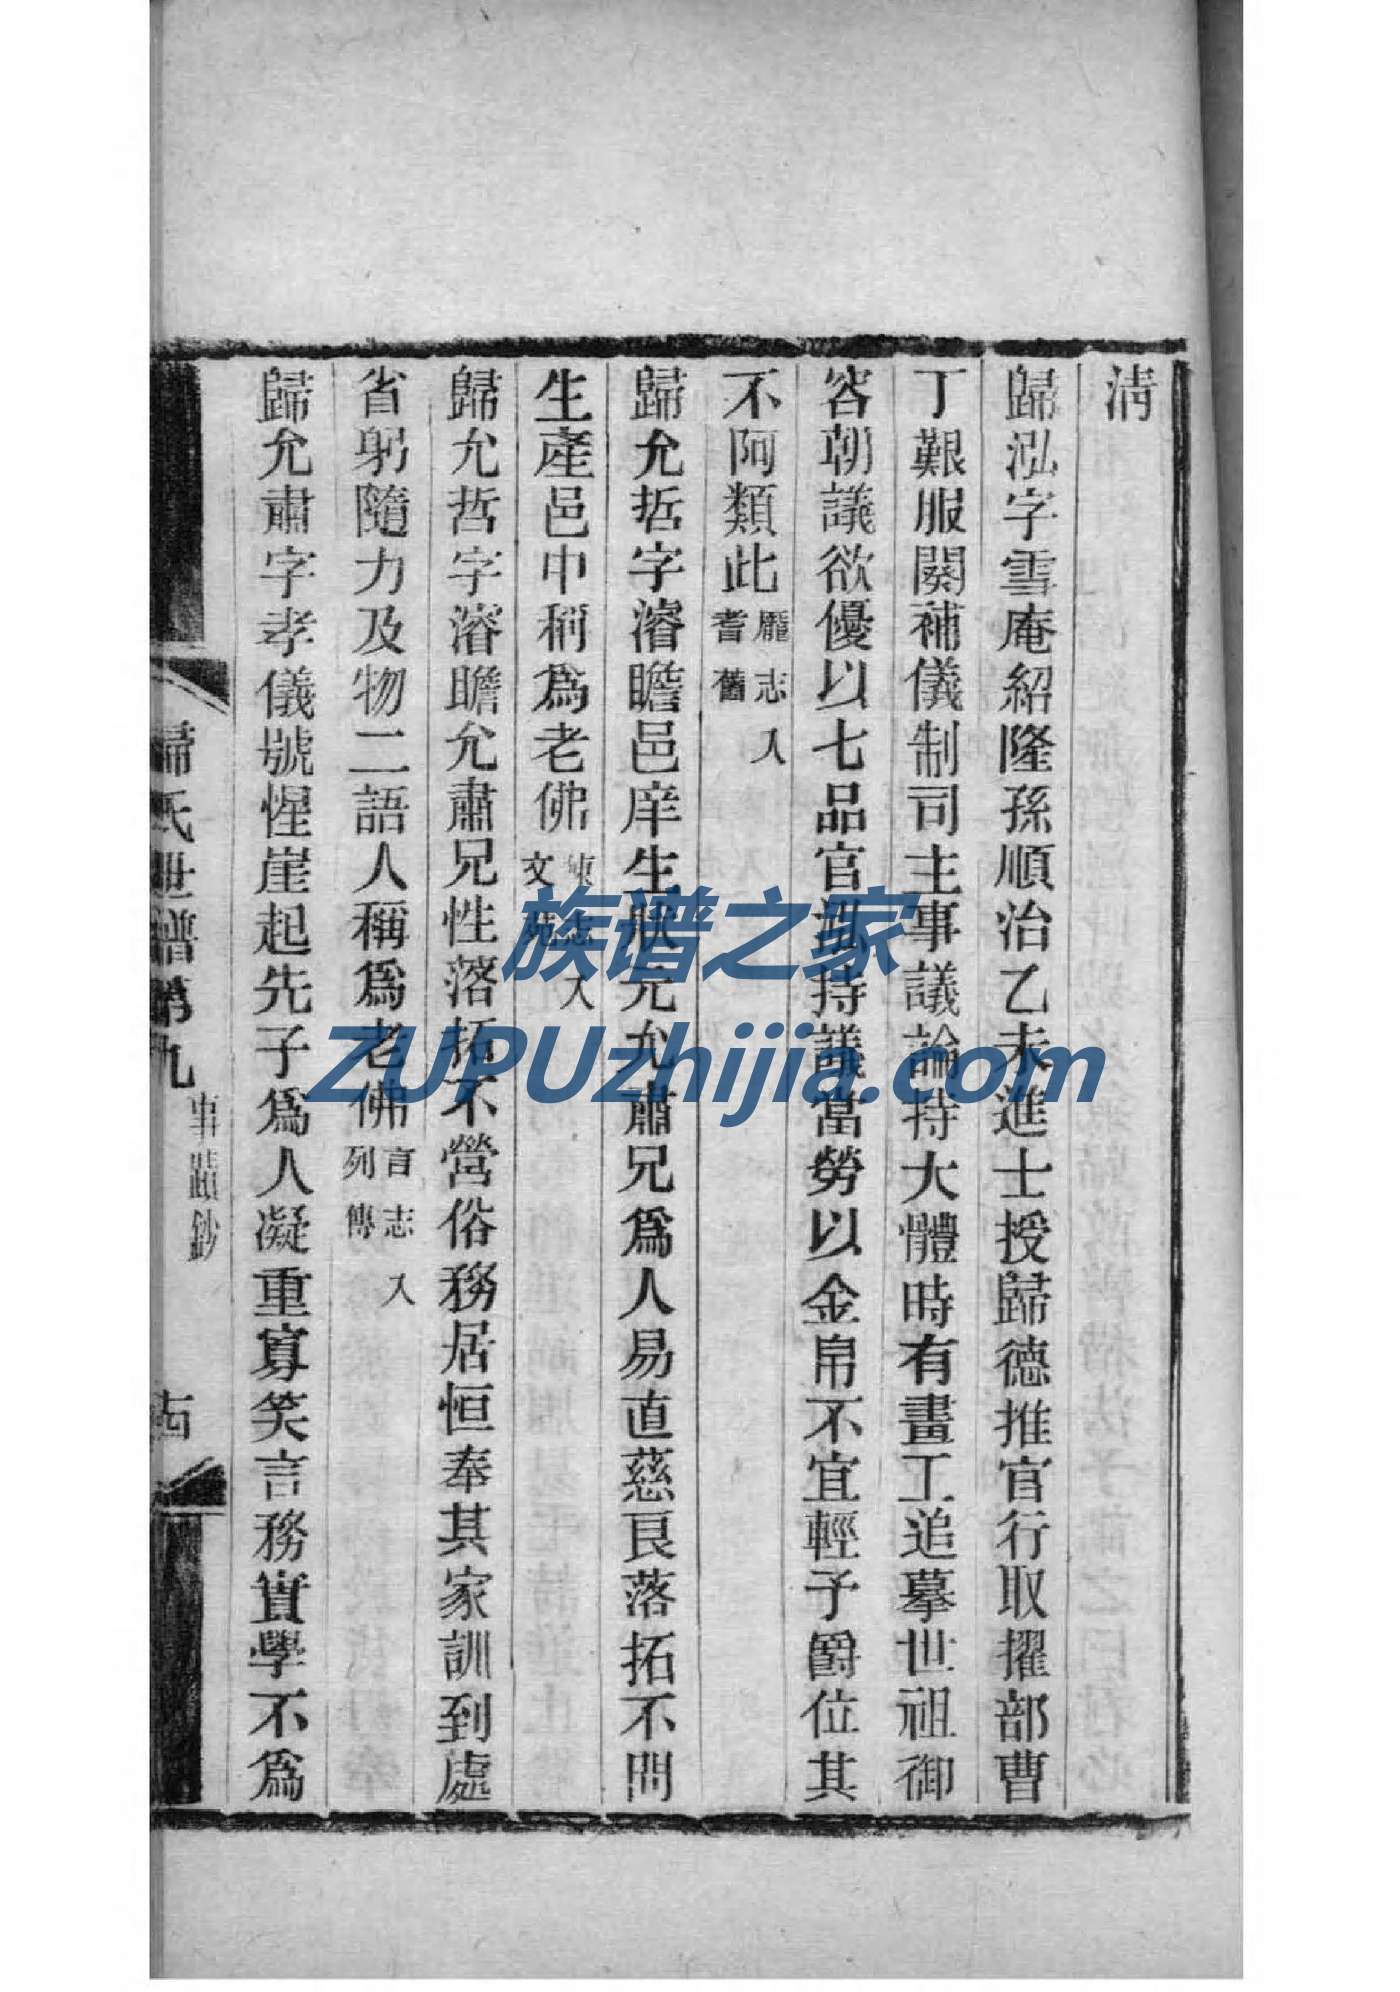 清
歸泓字雪庵紹隆孫順治乙未進士授歸德推官行取擢部曹
丁艱服闋補儀制司主事議論持大體時有畫工追摹世祖御
容朝議欲優以七品官泓持議當勞以金帛不宜輕予爵位其
不阿類此龐志入耆舊
歸允哲字濬瞻邑庠生狀元允肅兄爲人易直慈良落拓不問
生產邑中稱爲老佛陳志入文苑
歸允哲字濬瞻允肅兄性落拓不營俗務居恒奉其家訓到處
省躬隨力及物二語人稱爲老佛言志入列傳
歸允肅字孝儀號惺崖起先子爲人凝重寡笑言務實學不爲
歸氏世譜第九 事蹟鈔
古
族谱之家
ZUPUzhijia.com